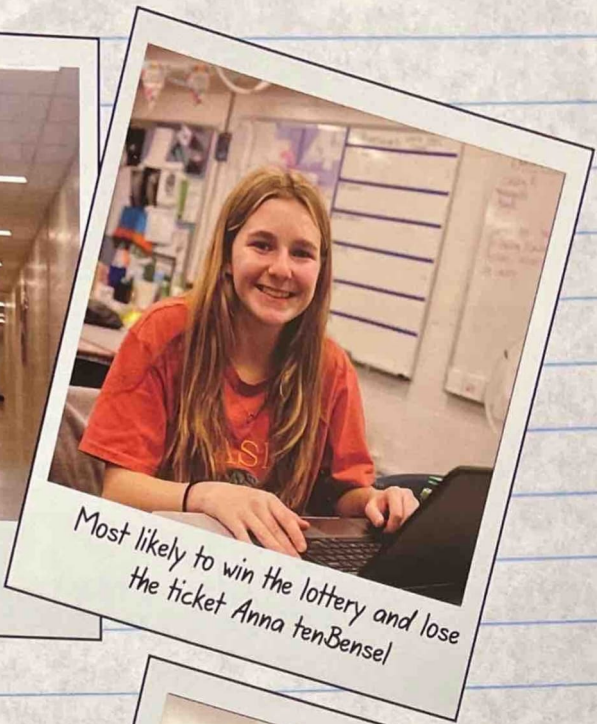 Most likely to win the lottery and lose
the ticket Anna tenBensel